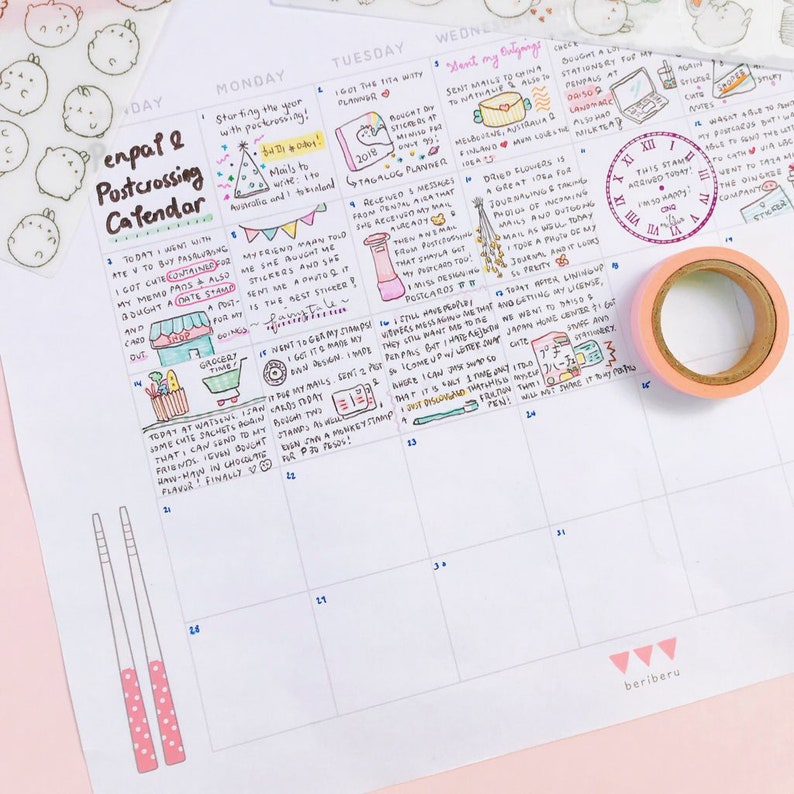 MONDAY
TUESDAY
Penpal &
Postcrossing
Calendar
1
Starting the year
with postcrossing!
Mails to
write: 1 to
Australia and 1 to Finland
2
I GOT THE TITA WITTY
PLANNER
2018
BOUGHT DIY
STICKERS AT
MINISO FOR
ONLY 99!
TAGALOG PLANNER
3
Sent my Outgoings
SENT MAILS TO CHINA
TO NATHALIE & ALSO TO
MELBOURNE, AUSTRALIA &
FINLAND
MUM LOVES THE
IDEA
BOUGHT A LOT
STATIONERY FOR MY
PENPALS AT
DAISO &
LANDMARK
ALSO HAD
MILKTEA!
AGAIN
CUTE
NOTES
SHOPEE
STICKY
7
TODAY I WENT WITH
ATE V TO BUY PASALUBONG
I GOT CUTE CONTAINER FOR
MY MEMO PADS & ALSO
BOUGHT A DATE STAMP
A POST-
CARD FOR MY
OUT GOINGS
SHOP
8
MY FRIEND MAAN TOLD
ME SHE BOUGHT ME
STICKERS AND SHE
SENT ME A PHOTO & IT
IS THE BEST STICKER!
~ fairytale ~
9
RECEIVED 3 MESSAGES
FROM PENPAL AIRA THAT
SHE RECEIVED MY MAIL
ALREADY
THEN AN EMAIL
FROM POSTCROSSING
THAT SHAYLA GOT
MY POSTCARD TOO!
I MISS DESIGNING
POSTCARDS
10
DRIED FLOWERS IS
A GREAT IDEA FOR
JOURNALING & TAKING
PHOTOS OF INCOMING
MAILS AND OUTGOING
MAIL AS WELL. TODAY
I TOOK A PHOTO OF MY
JOURNAL AND IT LOOKS
SO PRETTY
11
XII I II III IV V VI VII VIII IX X XI
THIS STAMP
ARRIVED TODAY!
I'M SO HAPPY!
12
WASN'T ABLE TO
MY POSTCARDS BUT I WAS
ABLE TO SEND THE LETTER
TO CATH VIA LBC
WENT TO
THE
COMPANY
STICKER
14
GROCERY
TIME!
TODAY AT WATSONS, I SAW
SOME CUTE SACHETS AGAIN
THAT I CAN SEND TO MY
FRIENDS. I EVEN BOUGHT
HAW-HAW IN CHOCOLATE
FLAVOR! FINALLY
15
WENT TO GET MY STAMPS!
I GOT IT & MADE MY
OWN DESIGN. I MADE
IT FOR MY MAILS. SENT 2 POST
CARDS TODAY
BOUGHT TWO
STAMPS AS WELL
EVEN SAW A MONKEY STAMP
FOR P30 PESOS!
16
I STILL HAVE PEOPLE/
VIEWERS MESSAGING ME THAT
THEY STILL WANT ME TO BE
PEN PALS BUT I HATE REJECTION
SO I COME UP W/ LETTER SWAP
WHERE I CAN JUST SWAP SO
THAT IT IS ONLY 1 TIME ONLY
JUST DISCOVERED
FRIXION
PEN!
17
TODAY AFTER LINING UP
AND GETTING MY LICENSE,
WE WENT TO DAISO &
JAPAN HOME CENTER & I GOT
CUTE STUFF AND
STATIONERY.
I TOLD
MYSELF
THAT I
WILL NOT SHARE IT TO MY PENPALS
18
19
21
22
23
24
25
28
29
30
31
beriberu